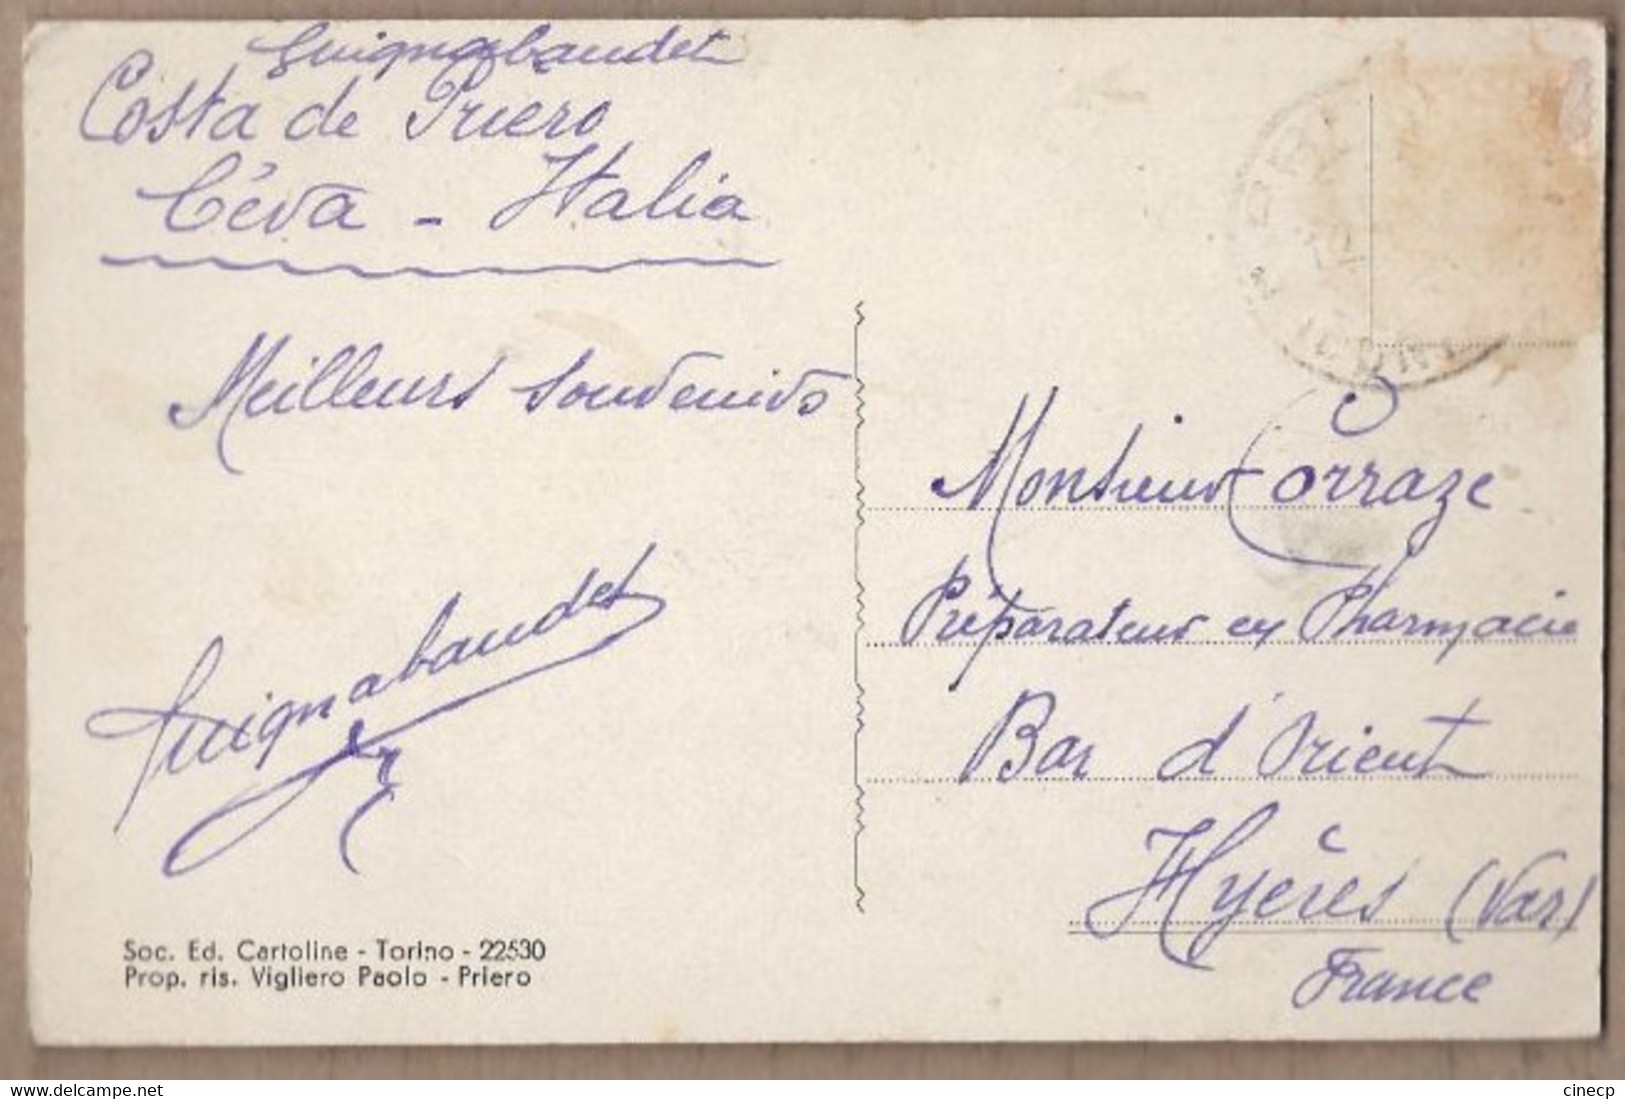 Guignabaudet
Costa de Priero
Céva - Italia
Meilleurs souvenirs
Guignabaudet
Soc. Ed. Cartoline - Torino - 22530
Prop. ris. Vigliero Paolo - Priero
Monsieur Corraze
Préparateur en Pharmacie
Bar d'Orient
Hyères (Var)
France
www.delcampe.net
cinecp